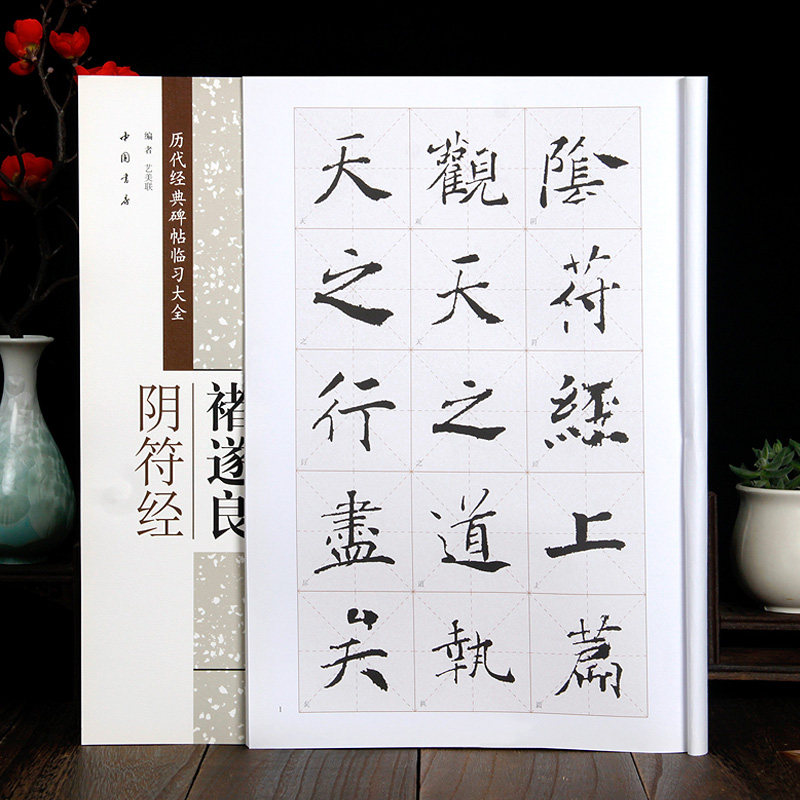 陰符經上篇
觀天之道執
天之行盡矣
1
历代经典碑帖临习大全
编者 艺美联
中国书店
褚遂良
阴符经